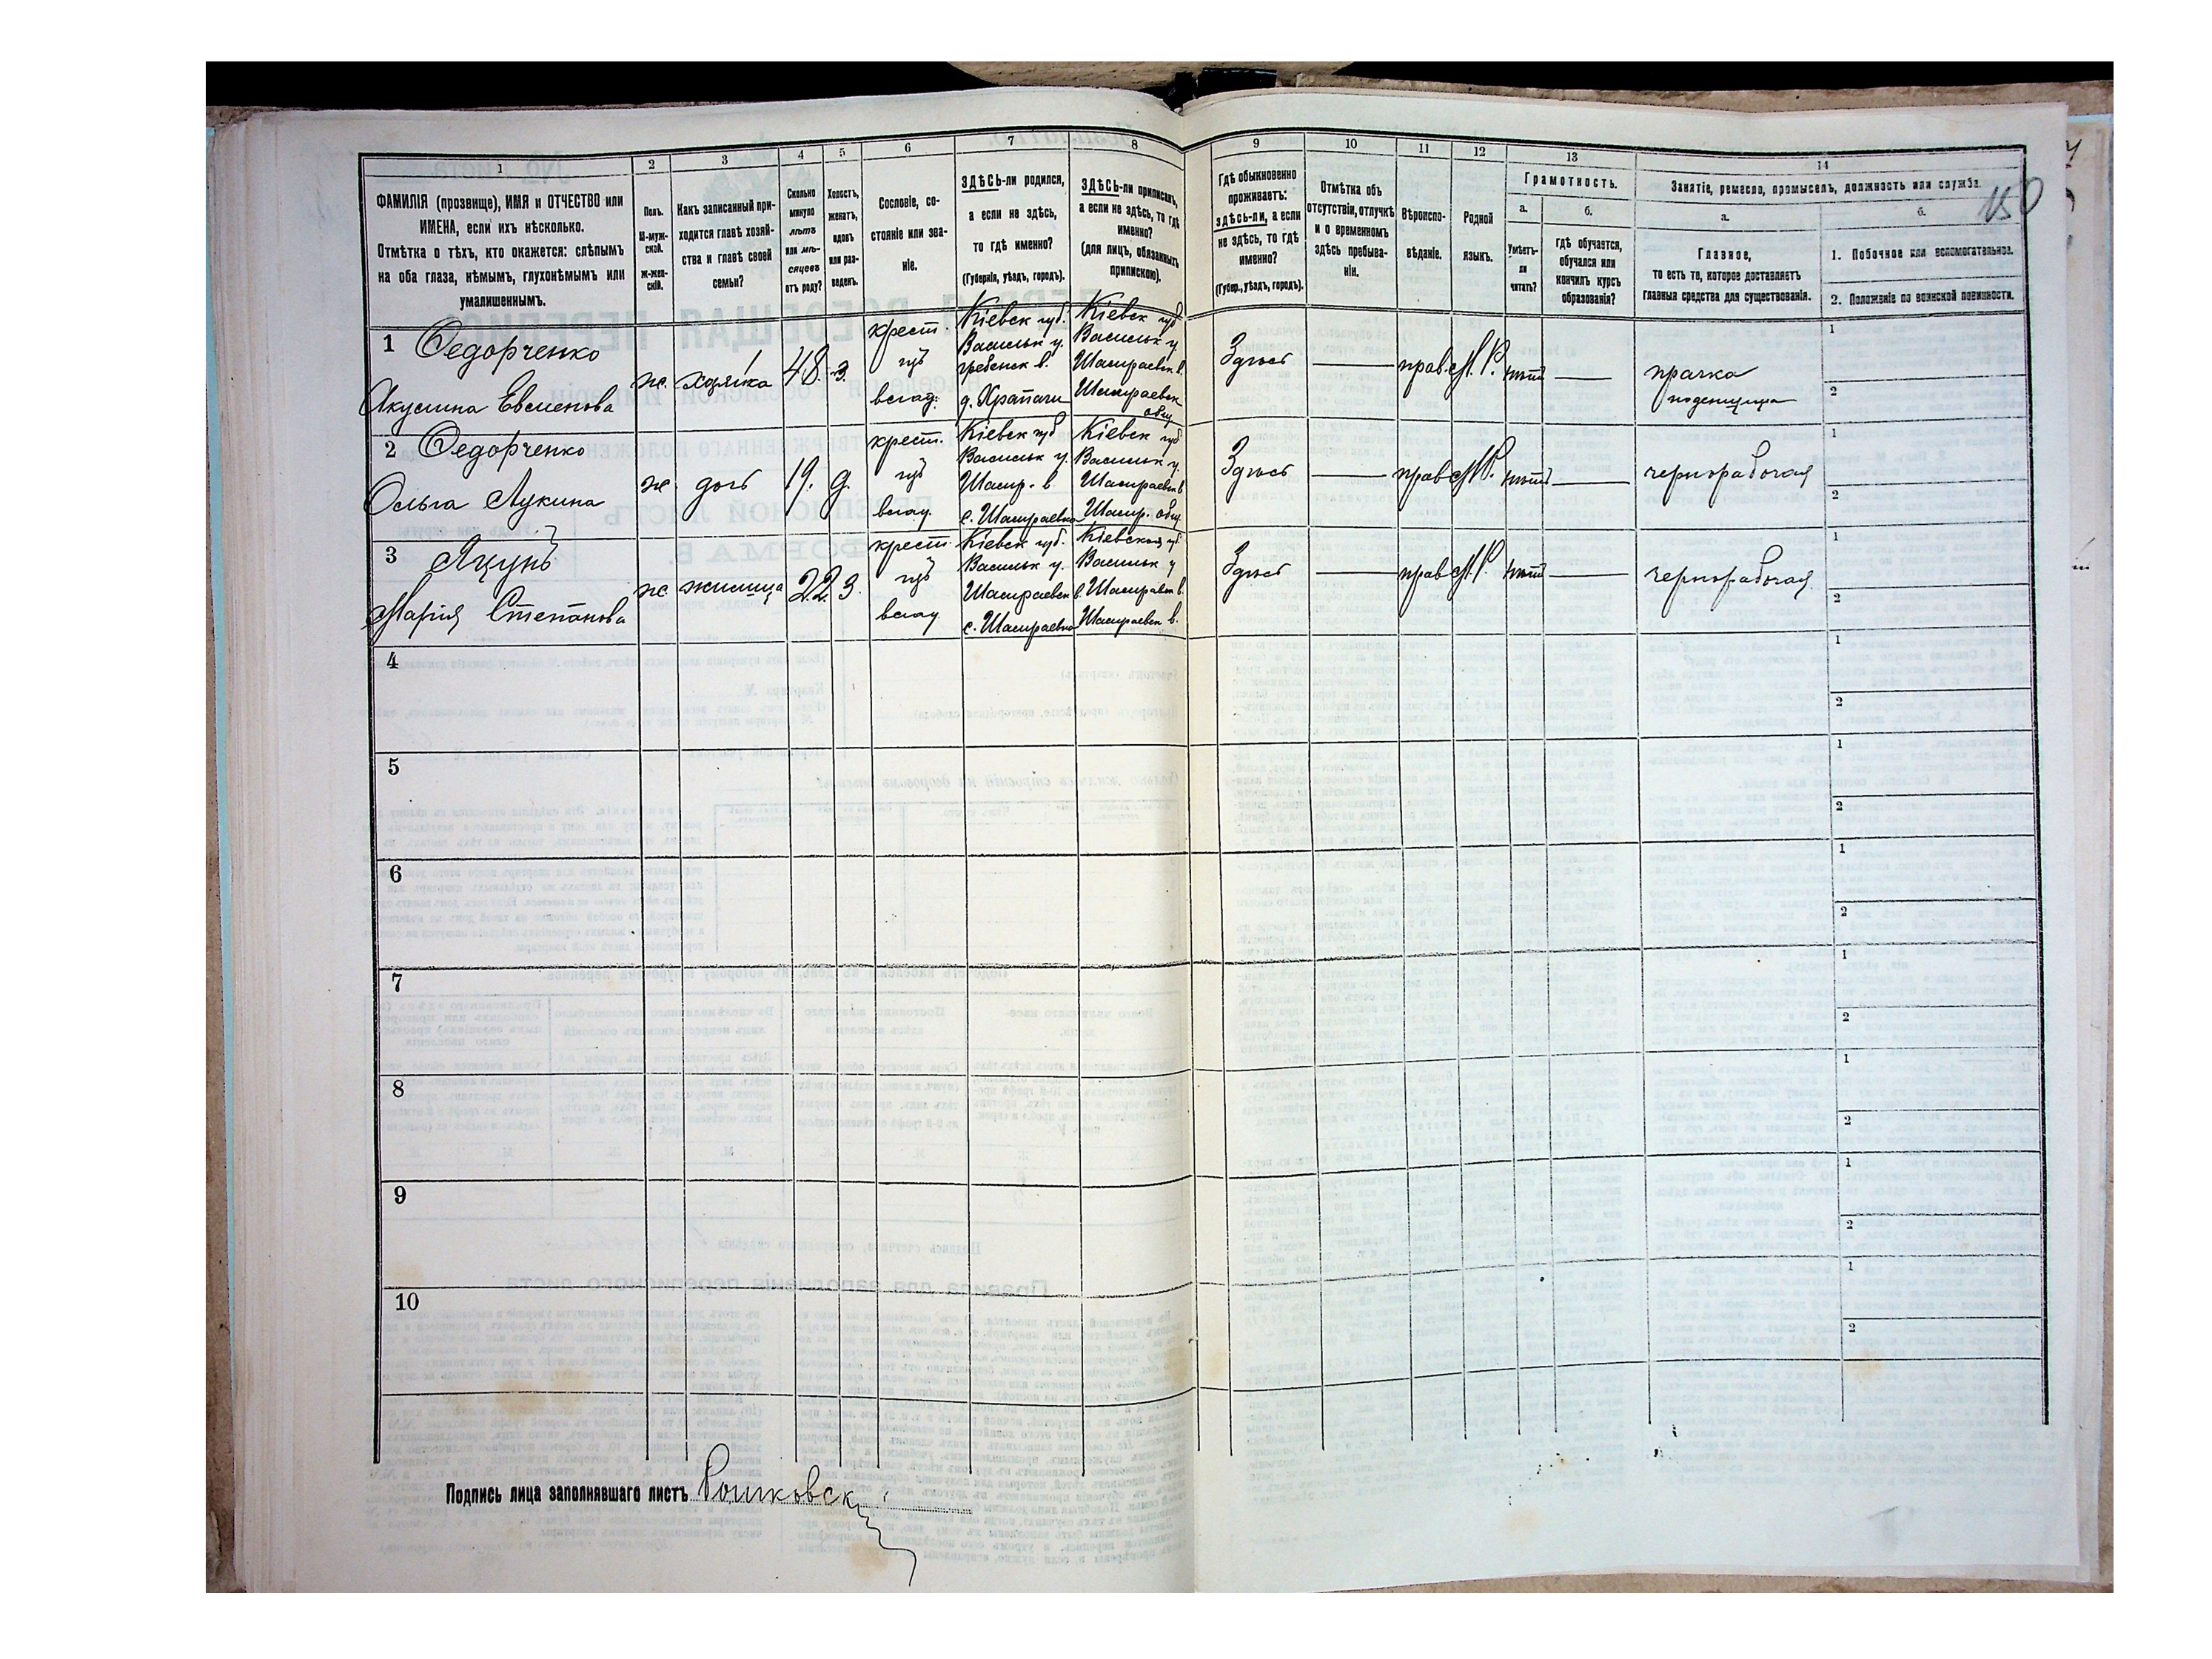 1 2 3 4 5 6 7 8 9 10 11 12 13 14
150
ФАМИЛІЯ (прозвище), ИМЯ и ОТЧЕСТВО или
ИМЕНА, если ихъ нѣсколько.
Отмѣтка о тѣхъ, кто окажется: слѣпымъ
на оба глаза, нѣмымъ, глухонѣмымъ или
умалишеннымъ.
Полъ.
М-муж-
ской.
Ж-жен-
скій.
Какъ записанный при-
ходится главѣ хозяй-
ства и главѣ своей
семьи?
Сколько
минуло
лѣтъ
или мѣ-
сяцевъ
отъ роду?
Холостъ,
женатъ,
вдовъ
или раз-
веденъ.
Сословіе, со-
стояніе или зва-
ніе.
ЗДѢСЬ-ли родился,
а если не здѣсь,
то гдѣ именно?
(Губернія, уѣздъ, городъ).
ЗДѢСЬ-ли приписанъ,
а если не здѣсь, то гдѣ
именно?
(для лицъ, обязанныхъ
припискою).
Гдѣ обыкновенно
проживаетъ:
здѣсь-ли, а если
не здѣсь, то гдѣ
именно?
(Губер., уѣздъ, городъ).
Отмѣтка объ
отсутствіи, отлучкѣ
и о временномъ
здѣсь пребыва-
ніи.
Вѣроиспо-
вѣданіе.
Родной
языкъ.
Грамотность.
а.
Умѣетъ-
ли
читать?
б.
гдѣ обучается,
обучался или
кончилъ курсъ
образованія?
Занятіе, ремесло, промыселъ, должность или служба.
а.
Главное,
то есть то, которое доставляетъ
главныя средства для существованія.
б.
1. Побочное или вспомогательное.
2. Положеніе по воинской повинности.
1 Федорченко
Акулина Евменова
ж. хозяйка 48. з.
крест.
изъ
влад.
Кіевск губ.
Васильк у.
гребенск в.
д. Храпачи
Кіевск губ
Васильк у
Шамраевск в.
Шамраевск
общ
Здѣсь — прав. М.Р. нѣтъ —
прачка
поденщица
1
2
2 Федорченко
Ольга Лукина
ж. дочь 19. д.
крест.
изъ
влад.
Кіевск губ
Васильк у.
Шамр. в
с. Шамраевка
Кіевск губ
Васильк у.
Шамраевск в
Шамр. общ
Здѣсь — прав М.Р. нѣтъ —
чернорабочая
1
2
3 Яцунъ
Марія Степанова
ж жилица 22 з.
крест.
изъ
влад
Кіевск губ.
Васильк у.
Шамраевск в.
с. Шамраевка
Кіевская г.
Васильк у
Шамравск в.
Шамраевск в.
Здѣсь — прав М.Р. нѣтъ —
чернорабочая
1
2
4
1
2
5
1
2
6
1
2
7
1
2
8
1
2
9
1
2
10
1
2
Подпись лица заполнявшаго листъ